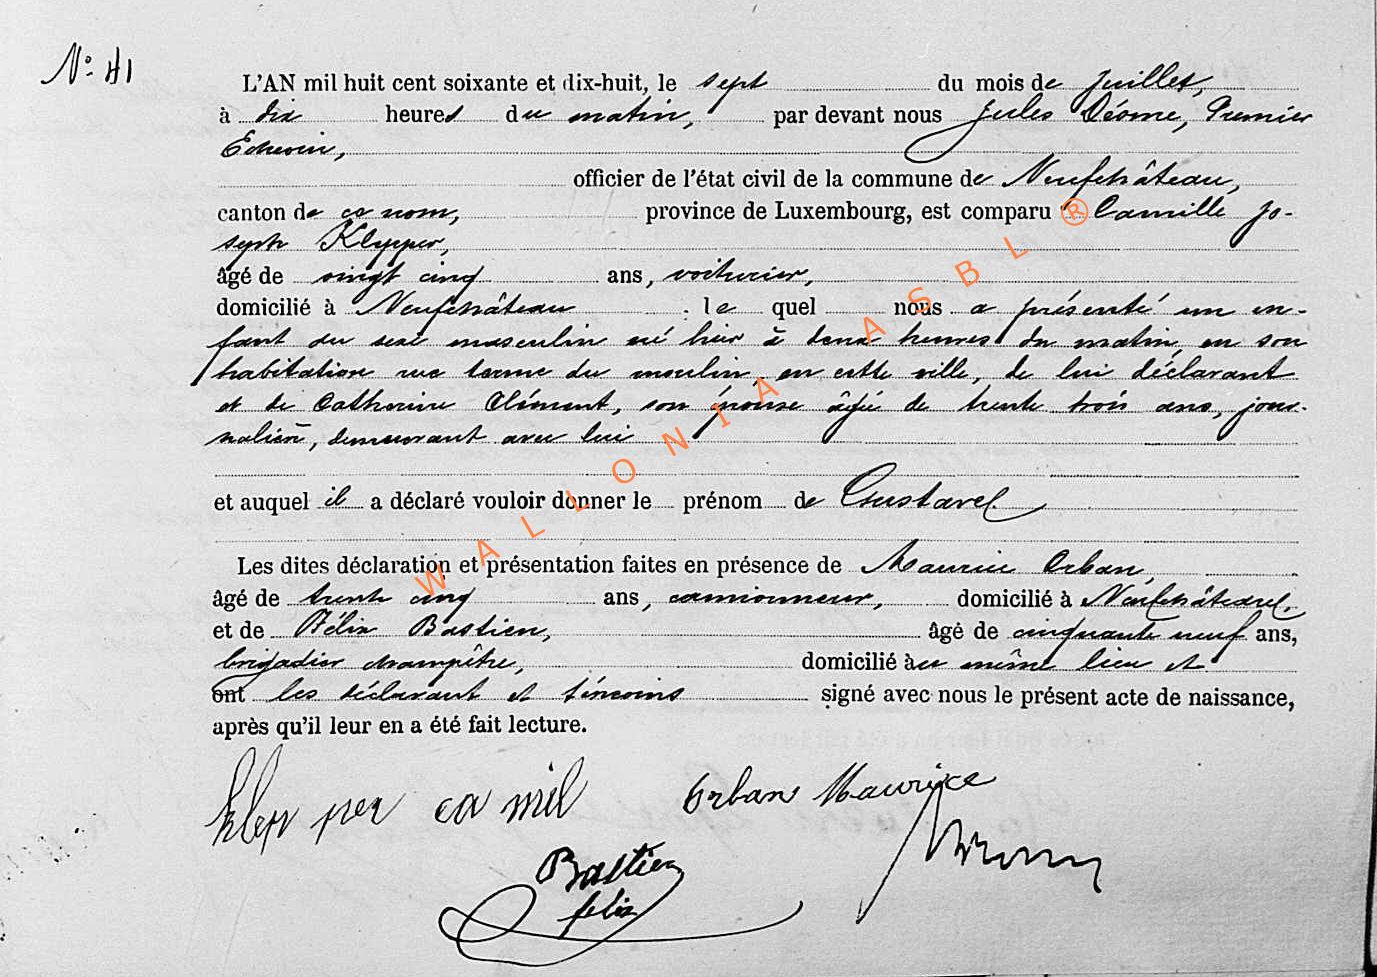 N° 41
L'AN mil huit cent soixante et dix-huit, le sept du mois de juillet,
à dix heures du matin, par devant nous Jules Déome, Premier
Echevin,
officier de l'état civil de la commune de Neufchâteau,
canton de ce nom, province de Luxembourg, est comparu Camille Jo-
seph Klepper,
âgé de vingt cinq ans, voiturier,
domicilié à Neufchâteau le quel nous a présenté un en-
fant du sexe masculin né hier à deux heures du matin, en son
habitation rue terme du moulin, en cette ville, de lui déclarant
et de Catherine Clément, son épouse âgée de trente trois ans, jour-
nalière, demeurant avec lui
et auquel il a déclaré vouloir donner le prénom de Gustave.
Les dites déclaration et présentation faites en présence de Maurice Orban,
âgé de trente cinq ans, camionneur, domicilié à Neufchâteau,
et de Félix Bastien, âgé de cinquante neuf ans,
brigadier champêtre, domicilié au même lieu et
ont les déclarant et témoins signé avec nous le présent acte de naissance,
après qu'il leur en a été fait lecture.
klepper camil Orban Maurice
Bastien
felix
WALLONIA ASBL ®